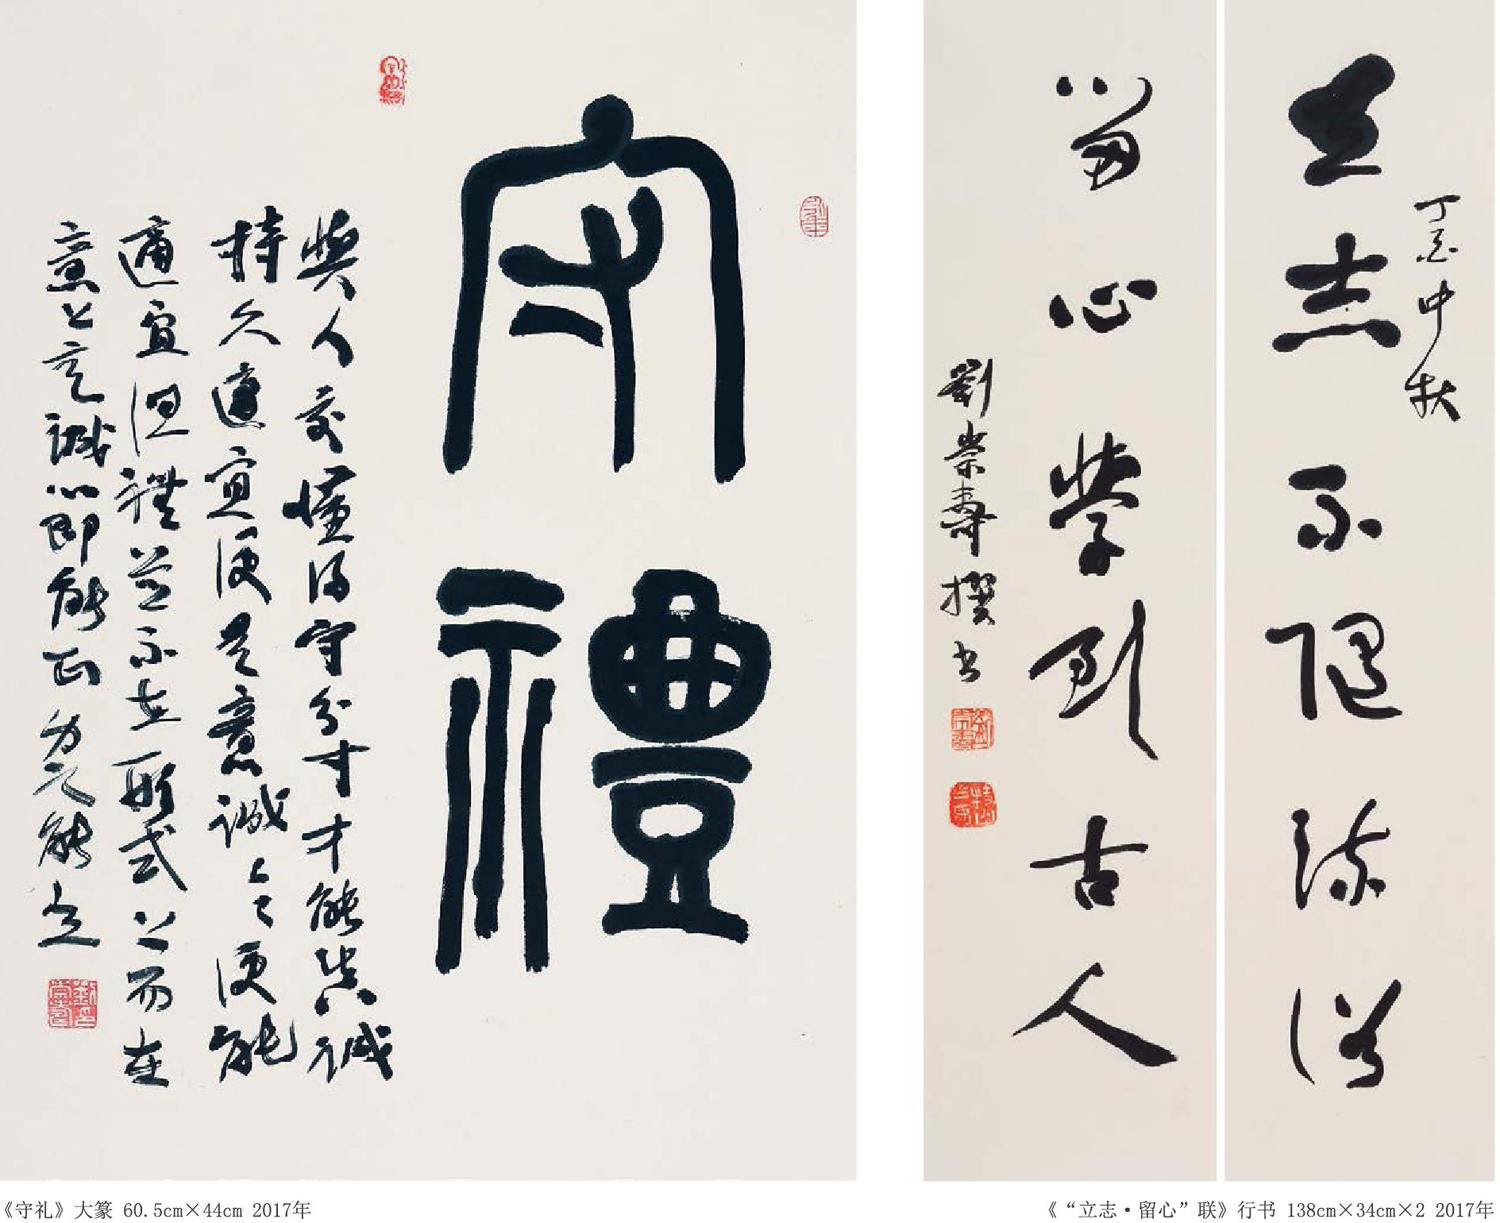 守禮
與人交懂得守分寸才能真誠
持久適宜便是意誠便能
適宜但禮並不在形式上而在
意上意誠心即能正能立
丁酉中秋
立志不隨流俗
留心學到古人
劉崇壽撰書
《守礼》大篆 60.5cm×44cm 2017年
《“立志·留心”联》行书 138cm×34cm×2 2017年